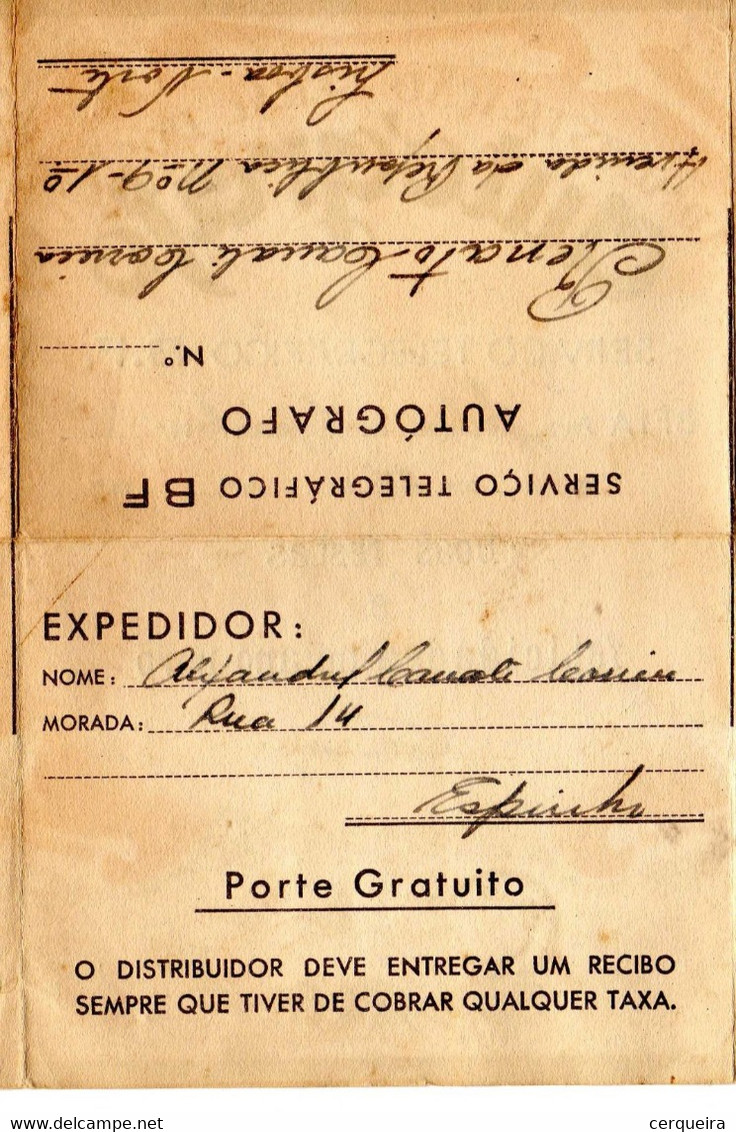 SERVIÇO TELEGRÁFICO BF
AUTÓGRAFO
N.º
Renato Canali Correia
Avenida da Republica nº 9-1º
Lisboa-Norte
EXPEDIDOR:
NOME: Correia
MORADA: Rua 14
Espinho
Porte Gratuito
O DISTRIBUIDOR DEVE ENTREGAR UM RECIBO
SEMPRE QUE TIVER DE COBRAR QUALQUER TAXA.
www.delcampe.net cerqueira